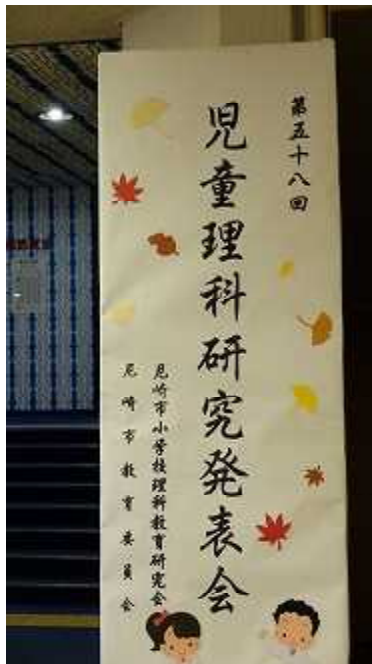 第五十八回
児童理科研究発表会
尼崎市小学校理科教育研究会
尼崎市教育委員会